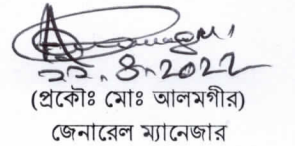 ২১.৪.২০২২
(প্রকৌঃ মোঃ আলমগীর)
জেনারেল ম্যানেজার